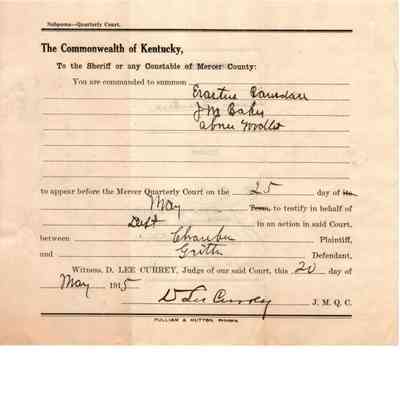 Subpoena—Quarterly Court.
The Commonwealth of Kentucky,
To the Sheriff or any Constable of Mercer County:
You are commanded to summon
Erastus Ransdall
J M Baker
Abner
to appear before the Mercer Quarterly Court on the 25 day of its
May Term, to testify in behalf of
Deft in an action in said Court,
between Plaintiff,
and Defendant.
Witness, D. LEE CURREY, Judge of our said Court, this 20 day of
May 1915
D Lee Currey J. M. Q. C.
PULLIAM & HUTTON, PRINTERS